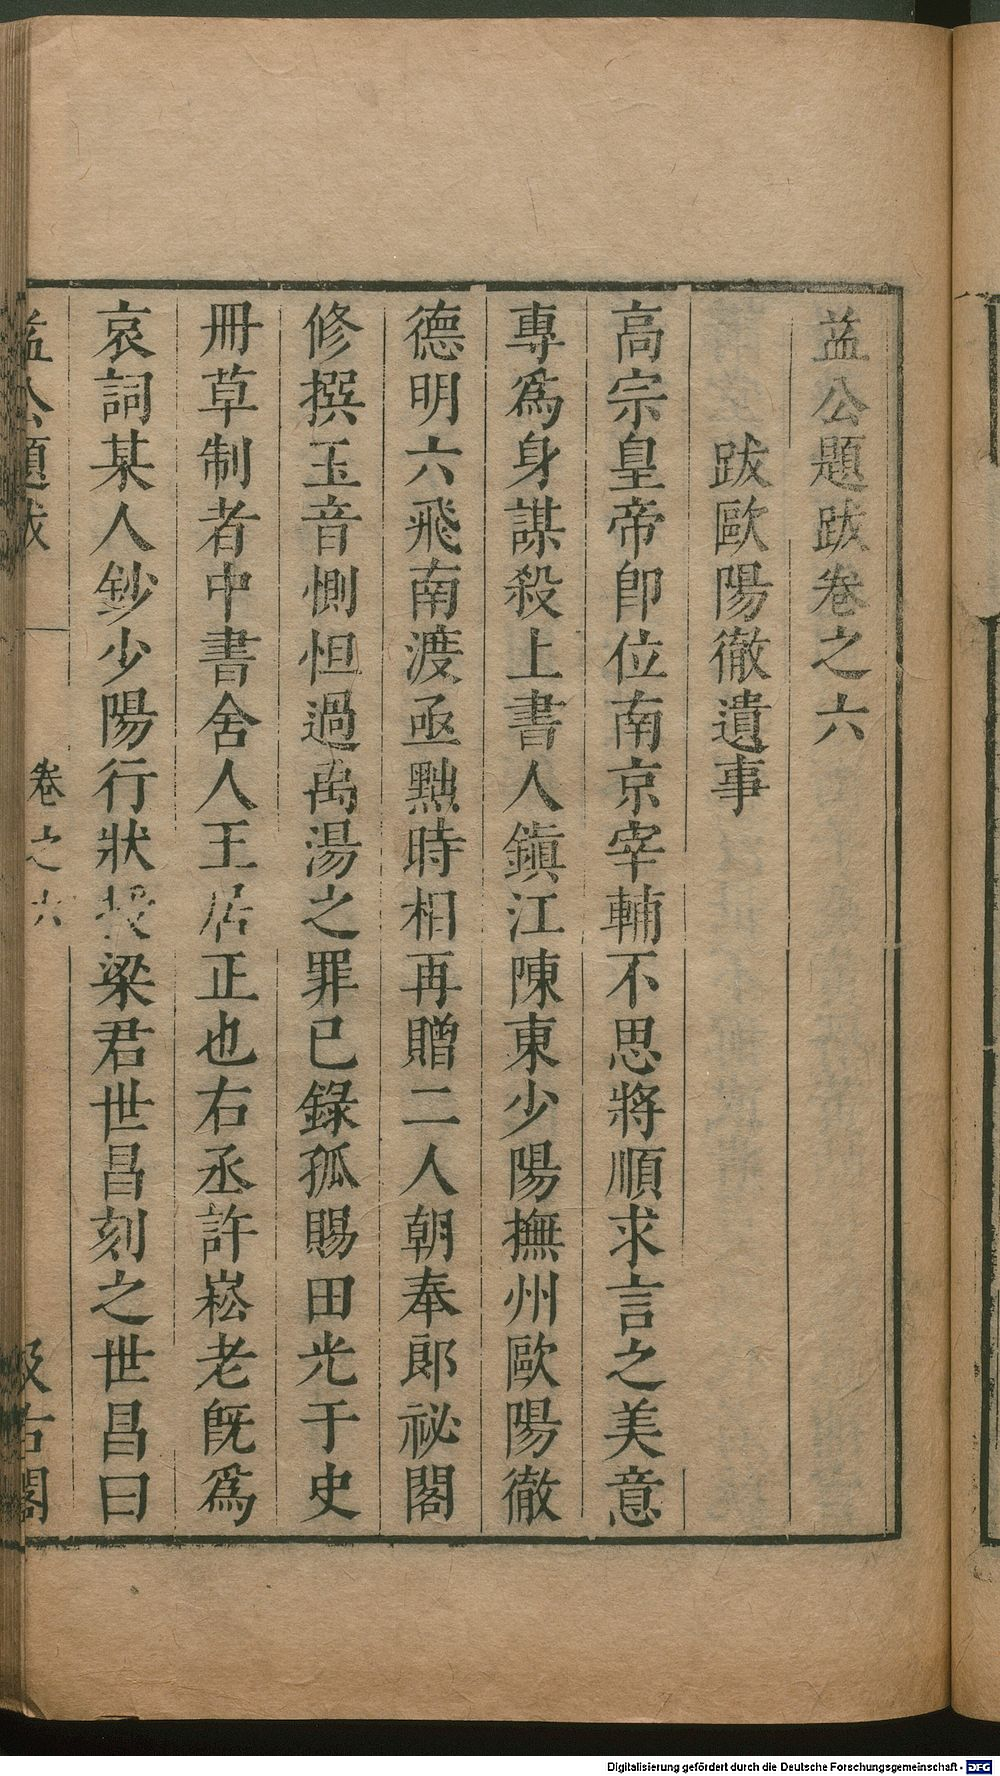 益公題跋卷之六
跋歐陽徹遺事
高宗皇帝卽位南京宰輔不思將順求言之美意
專爲身謀殺上書人鎭江陳東少陽撫州歐陽徹
德明六飛南渡亟黜時相再贈二人朝奉郎祕閣
修撰玉音惻怛過禹湯之罪已錄孤賜田光于史
冊草制者中書舍人王居正也右丞許崧老旣爲
哀詞某人鈔少陽行狀授梁君世昌刻之世昌曰
益公題跋 卷之六 汲古閣
Digitalisierung gefördert durch die Deutsche Forschungsgemeinschaft - DFG